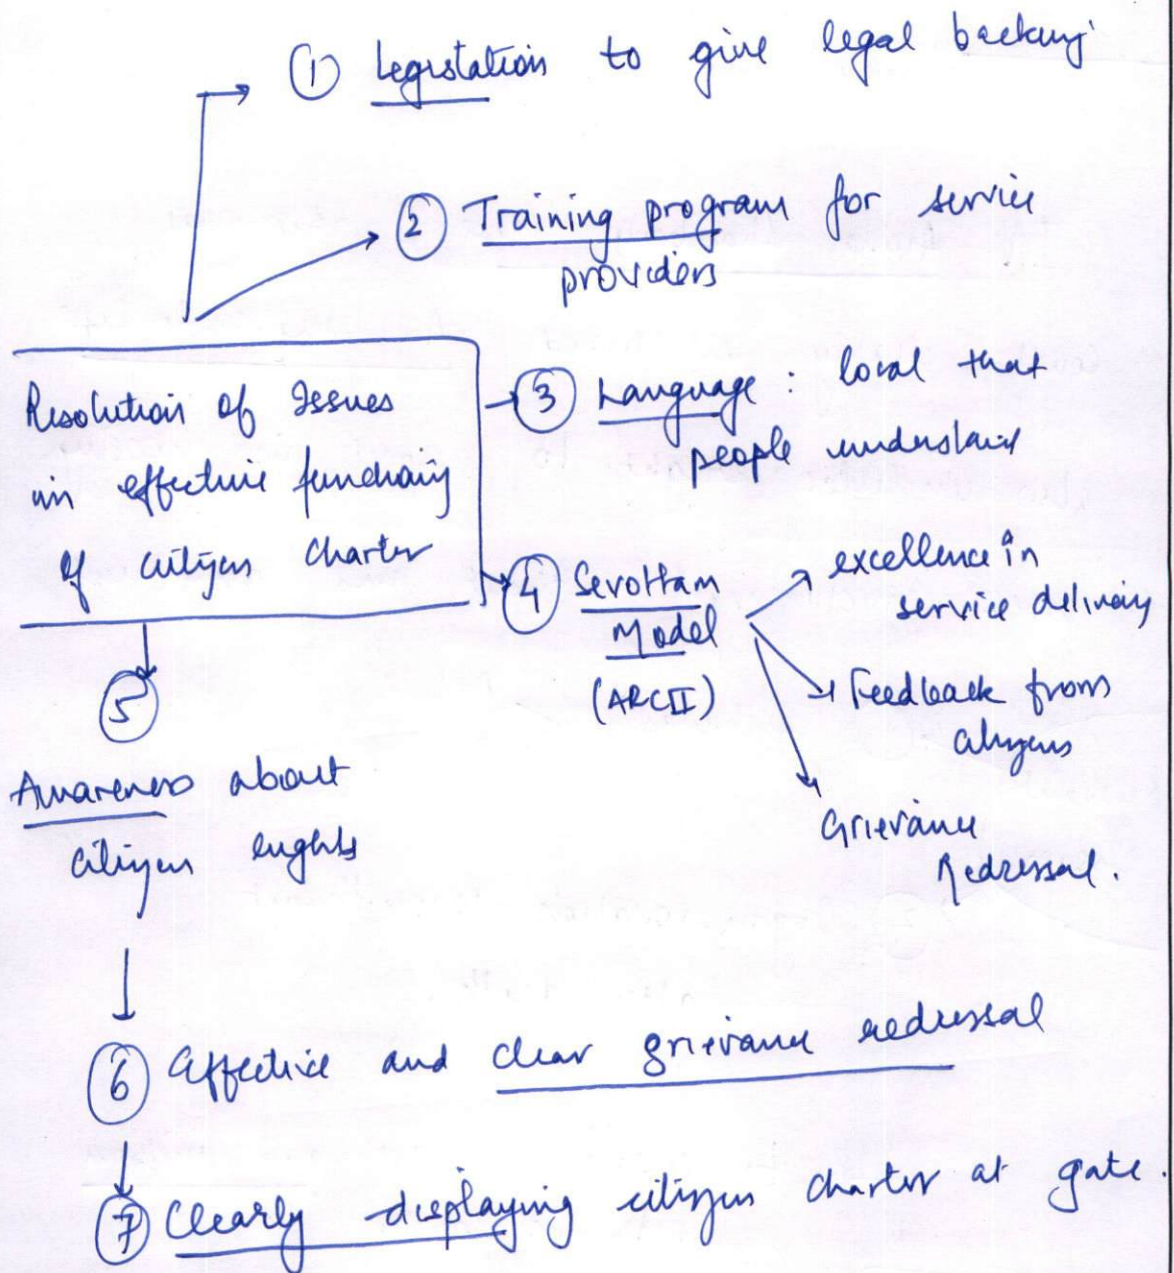 ① Legistation to give legal backing
② Training program for service
providers
Resolution of Issues
in effective functioning
of citizen charter
③ Language : local that
people understand
④ Sevottam
Model
(ARCII)
excellence in
service delivery
Feedback from
citizens
Grievance
Redressal.
⑤
Awareness about
citizen rights
⑥ Effective and clear grievance redressal
⑦ Clearly displaying citizen charter at gate.